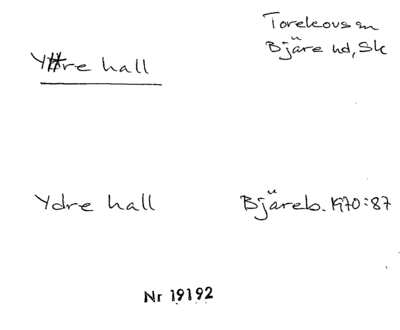 Torekovs sn
Bjäre hd, Sk
Yttre hall
Ydre hall
Bjäreb. 1970:87
Nr 19192